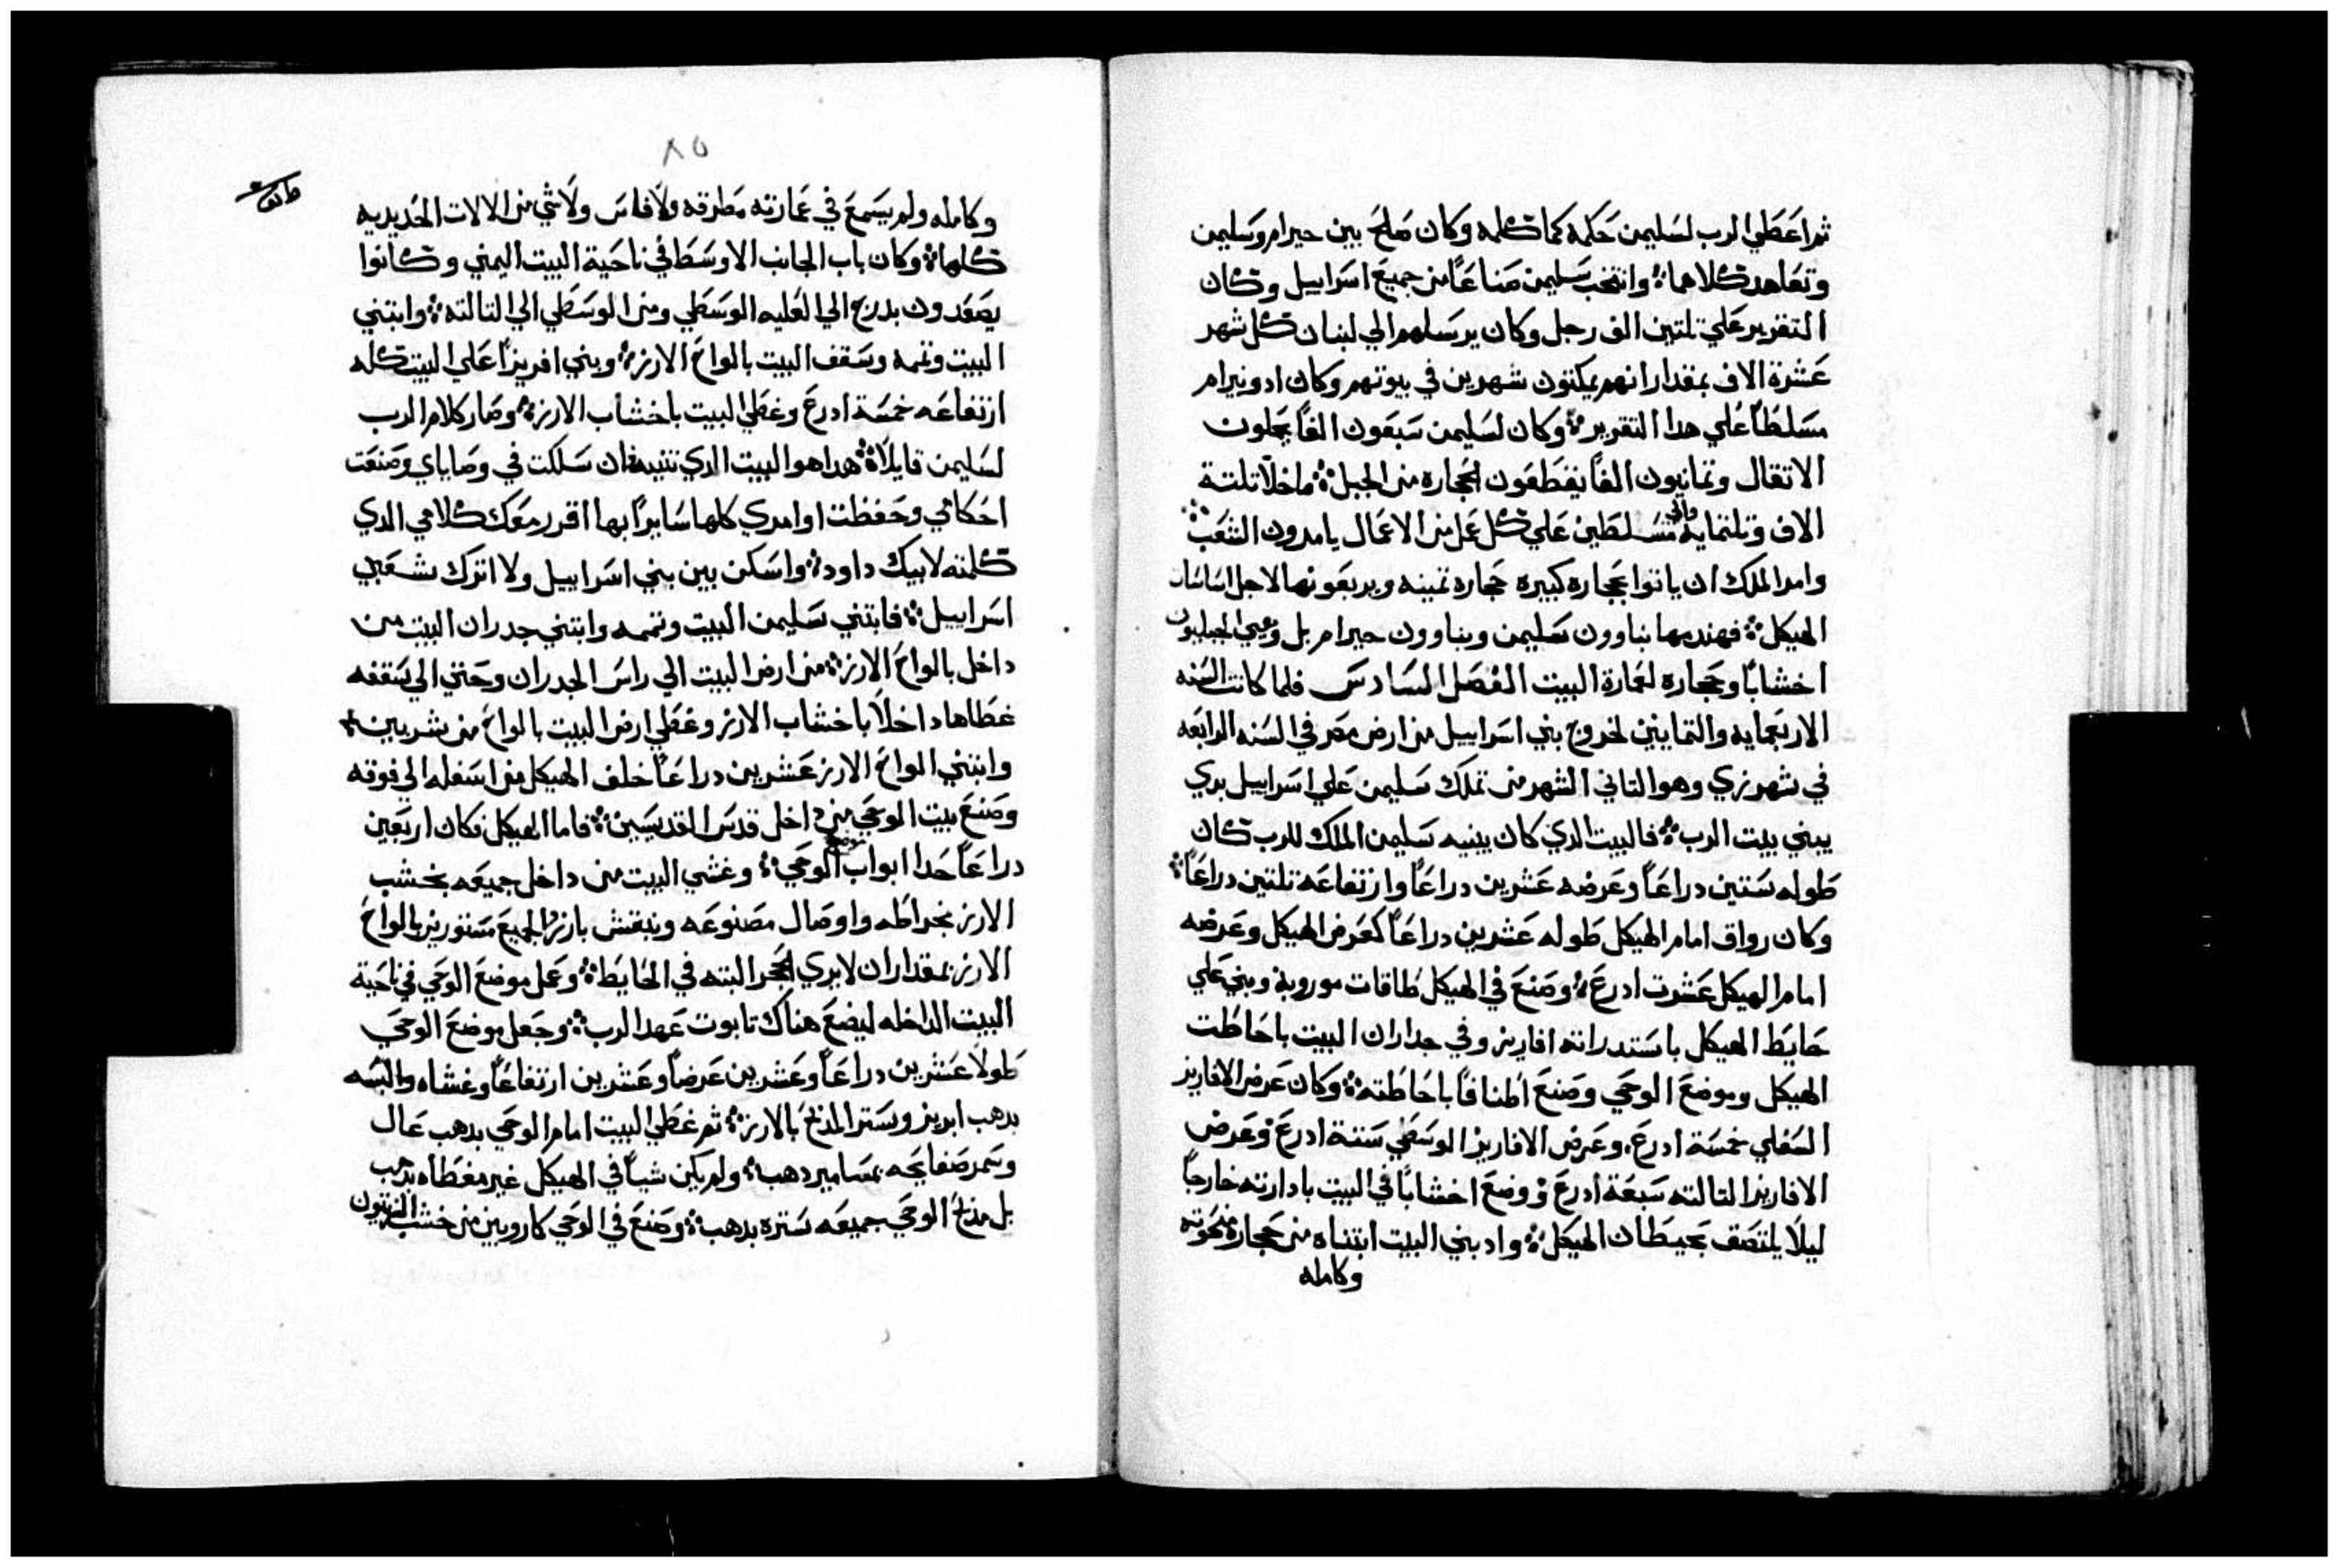 ثم اعطي الرب لسليمن حكمه كما كلمه وكان صلح بين حيرام وسليمن
وتعاهد كلاهما وانتخب سليمن صناعًا من جميع اسراييل وكان
التقرير علي تلتين الف رجل وكان يرسلهم الي لبنان كل شهر
عشرة الاف بمقدار انهم يمكتون شهرين في بيوتهم وكان ادونيرام
مسلطًا علي هدا التقرير وكان لسليمن سبعون الفًا يحملون
الاتقال وتمانيون الفًا يقطعون الحجاره من الجبل ما خلا تلتة
الاف وتلتمايه واني متسلطين علي كل عمل من الاعمال يامرون الشعب
وامر الملك ان ياتوا بحجاره كبيره حجاره تمينه ويربعونها لاجل اساسات
الهيكل فهندمها بناوون سليمن وبناوون حيرام بل وهيي الجبليون
اخشابًا وحجاره لعمارة البيت الفصل السادس فلما كانت السنه
الاربعمايه والتمانين لخروج بني اسراييل من ارض مصر في السنه الرابعه
في شهر زي وهو التاني الشهر من تملك سليمن علي اسراييل بدي
يبني بيت الرب فالبيت الدي كان يبنيه سليمن الملك للرب كان
طوله ستين دراعًا وعرضه عشرين دراعًا وارتفاعه تلتين دراعًا
وكان رواق امام الهيكل طوله عشرين دراعًا كعرض الهيكل وعرضه
امام الهيكل عشرت ادرع وصنع في الهيكل طاقات موروبة وبني علي
حايط الهيكل باستدراته افاريز وفي جداران البيت باحاطت
الهيكل وموضع الوحي وصنع اطنافًا باحاطته وكان عرض الافاريز
السفلي خمسة ادرع وعرض الافاريز الوسطي ستة ادرع وعرض
الافاريز التالته سبعة ادرع ووضع اخشابًا في البيت بادارته خارجًا
ليلا يلتصق بحيطان الهيكل واد بني البيت ابتناه من حجارة منحوته
وكامله
٨٥
وكامله ولم يسمع في عمارته مطرقه ولا فاس ولا شي من الالات الحديديه
كلها وكان باب الجانب الاوسط في ناحية البيت اليمني وكانوا
يصعدون بدرج الي العليه الوسطي ومن الوسطي الي التالته وابتني
البيت وتممه وسقف البيت بالواح الارز وبني افريزًا علي البيت كله
ارتفاعه خمسة ادرع وغطي البيت باخشاب الارز وصار كلام الرب
لسليمن قايلًا هدا هو البيت الدي تبنيه فان سلكت في وصاياي وصنعت
احكامي وحفظت اوامري كلها سايرًا بها اقرر معك كلامي الدي
كلمته لابيك داود واسكن بين بني اسراييل ولا اترك شعبي
اسراييل فابتني سليمن البيت وتممه وابتني جدران البيت من
داخل بالواح الارز من ارض البيت الي راس الجدران وحتي الي سقفه
غطاها داخلًا باخشاب الارز وغطي ارض البيت بالواح من شربين
وابتني الواح الارز عشرين دراعًا خلف الهيكل من اسفله الي فوقه
وصنع بيت الوحي من داخل قدس القديسين فاما الهيكل فكان اربعين
دراعًا حدا ابواب موضع الوحي وغشي البيت من داخل جميعه بخشب
الارز بخراطه واوصال مصنوعه وبنقش بارز الجميع مستورين بالواح
الارز بمقدار ان لا يري الحجر البته في الحايط وعمل موضع الوحي في ناحية
البيت الداخله ليضع هناك تابوت عهد الرب وجعل موضع الوحي
طولًا عشرين دراعًا وعشرين عرضًا وعشرين ارتفاعًا وغشاه والبسه
بدهب ابريز وستر المدبح بالارز ثم غطي البيت امام الوحي بدهب عال
وسمر صفايحه بمسامير دهب ولم يكن شيًا في الهيكل غير مغطاه بدهب
بل مدبح الوحي جميعه ستره بدهب وصنع في الوحي كاروبين من خشب الزيتون